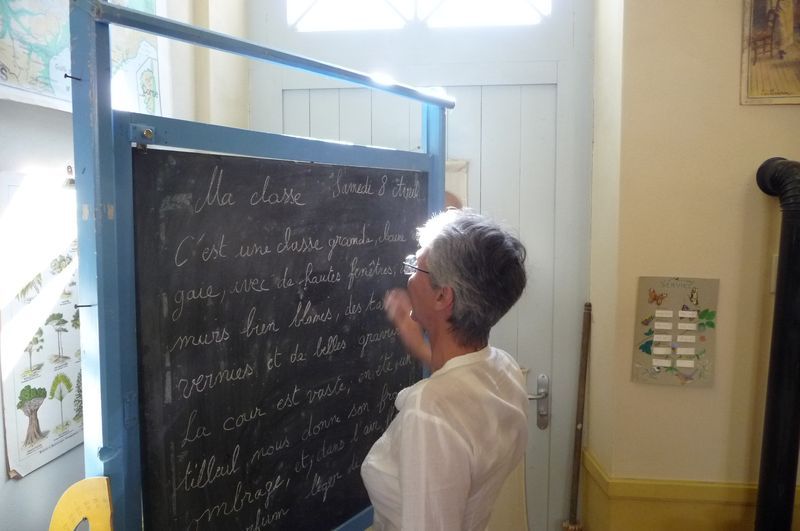 Ma classe Samedi 8 Avril
C'est une classe grande, claire
gaie, avec de hautes fenêtres,
murs bien blancs, des
vernies et de belles gravures
La cour est vaste, en été, un
tilleul nous donne son
ombrage, et, dans l'air
parfum léger de
SERVICE